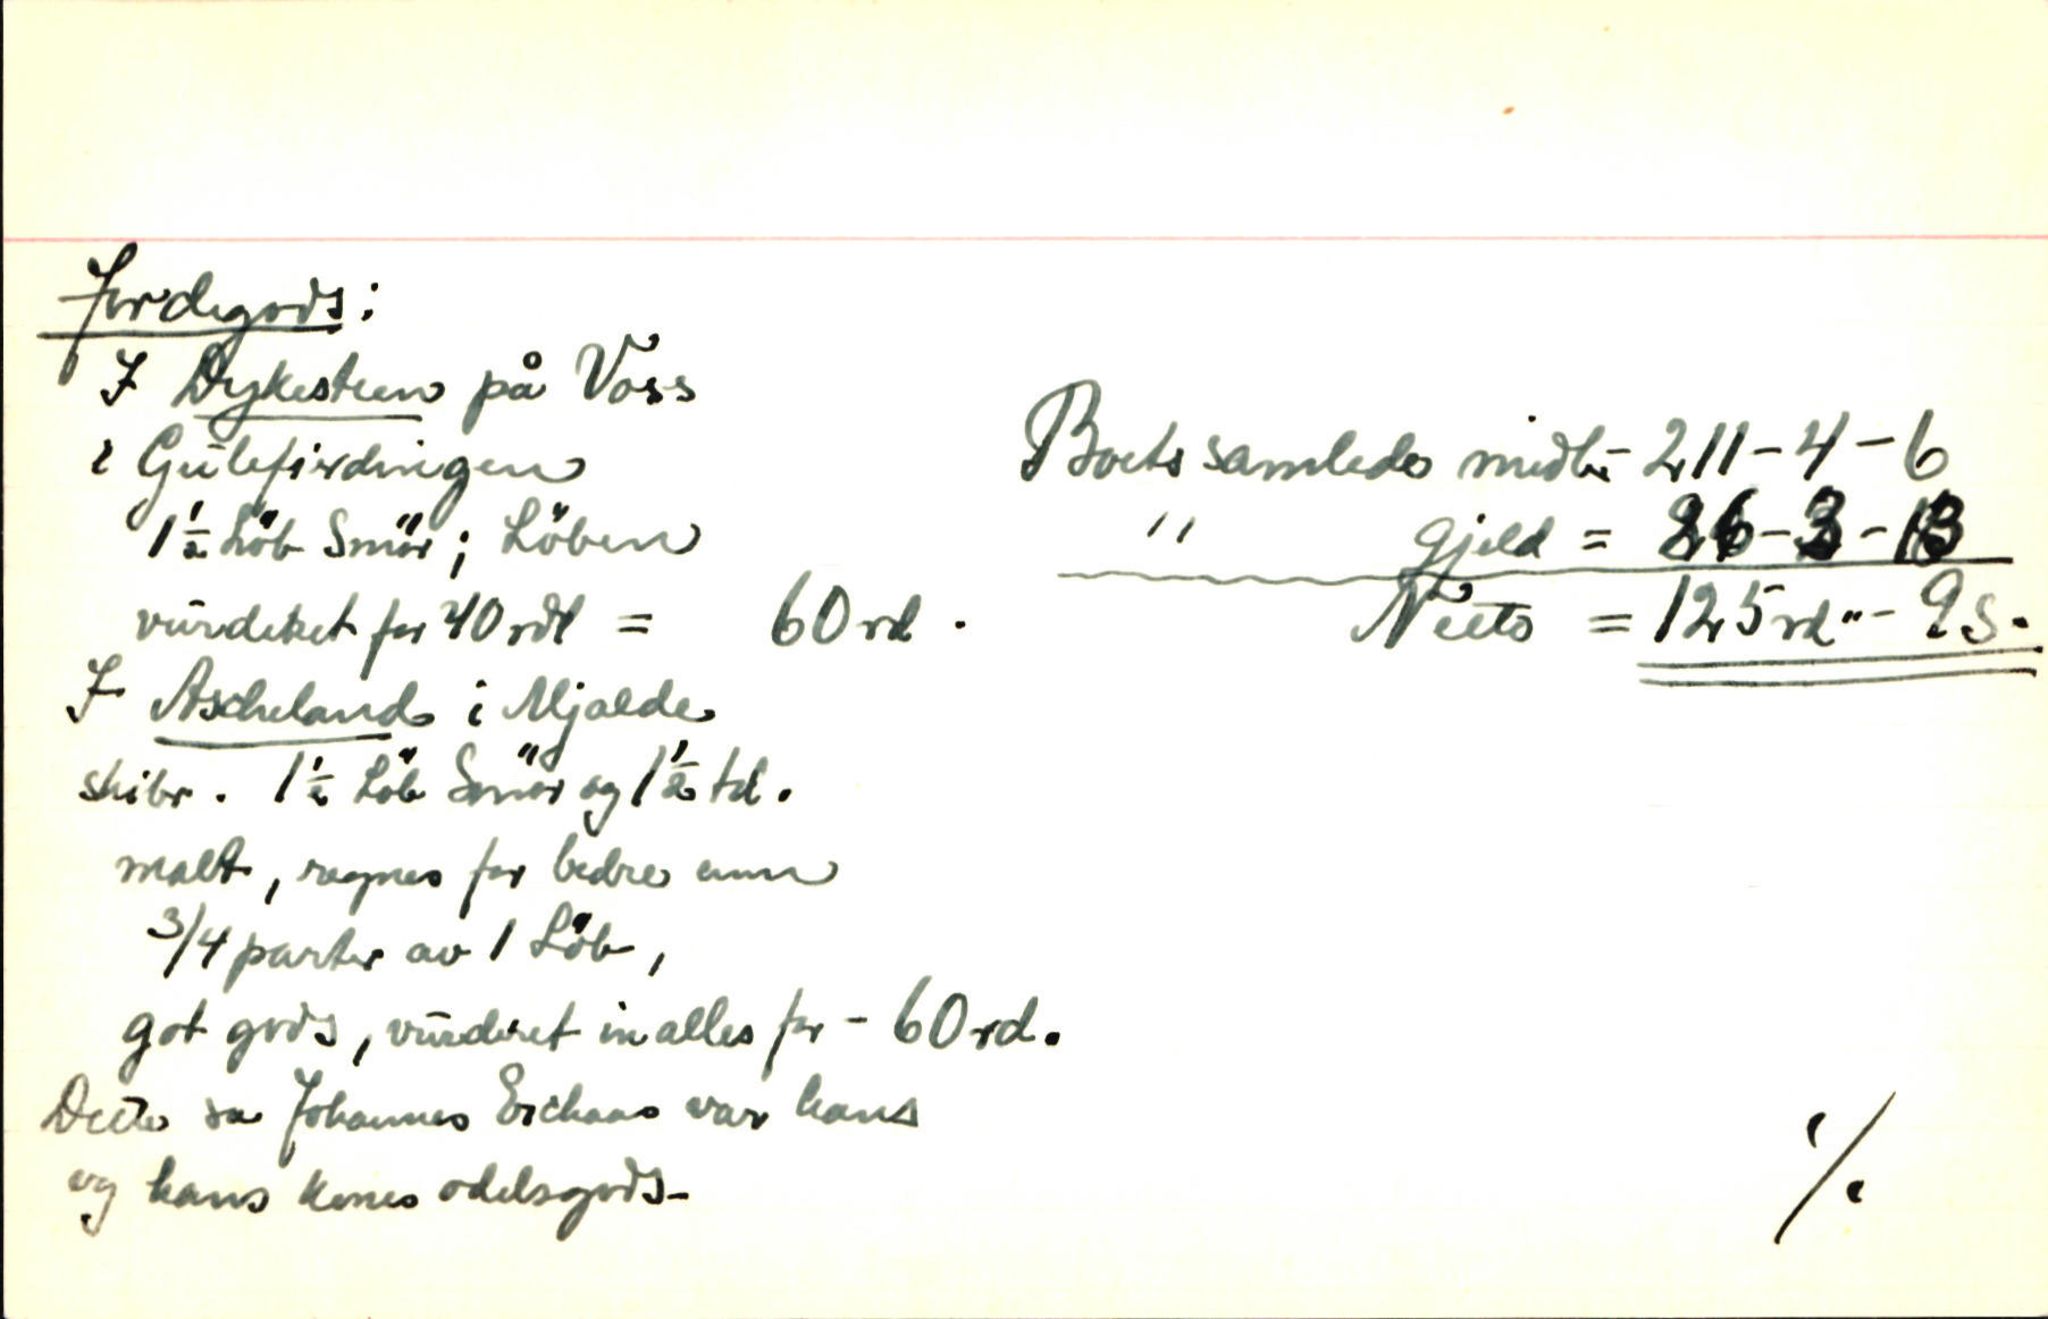 Jordegods:
I Dykesteen på Voss
i Gulefierdingen
1½ Löb Smör; Löben
vurderet for 40 rdl = 60 rd.
I Ascheland i Mjaelde
skibr. 1½ Löb Smör og 1½ td.
malt, regnes for bedre enn
3/4 parter av 1 Löb,
got gods, vurderet in alles for - 60 rd.
Dette sa Johannes Erichsen var hans
og hans kones odelsgods-
Boets samlede midler - 211 - 4 - 6
" gjeld = 86 - 3 - 13
Netto = 125 rd " - 9 s.
./.